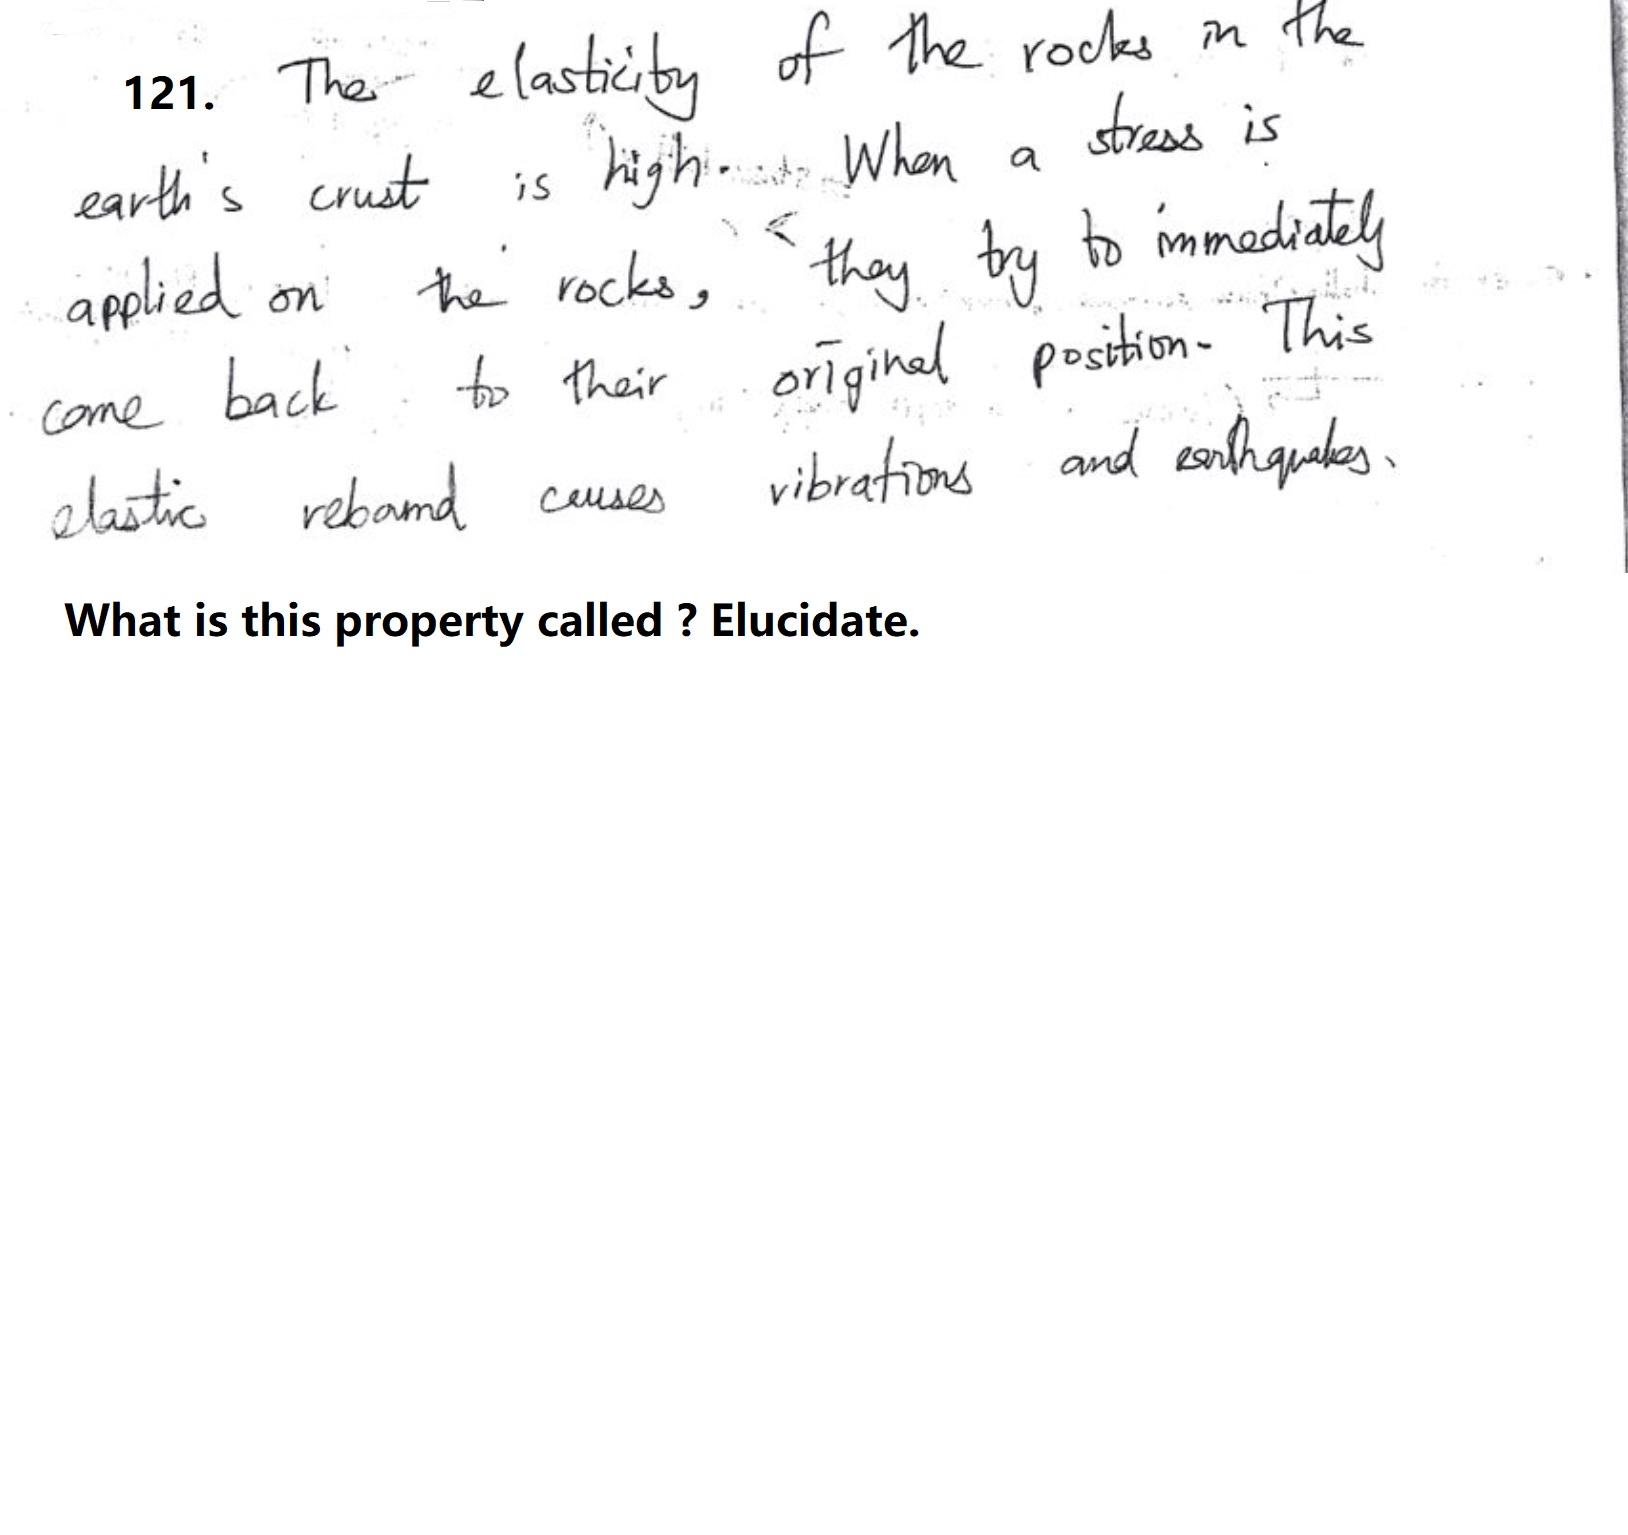 121. The elasticity of the rocks in the
earth's crust is high. When a stress is
applied on the rocks, they try to immediately
come back to their original position. This
elastic rebound causes vibrations and earthquakes.
What is this property called ? Elucidate.